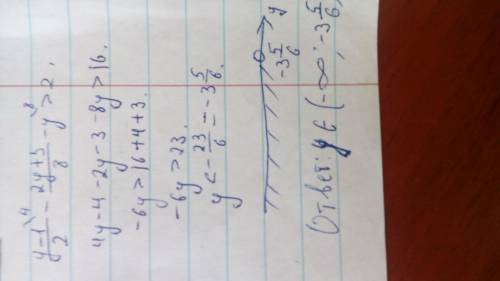 (y-1)/2 \4 - (2y+3)/8 - y \8 > 2.
4y-4-2y-3-8y>16.
-6y>16+4+3.
-6y>23.
y<-23/6=-3 5/6.
-3 5/6 y
Ответ: y∈(-∞;-3 5/6)